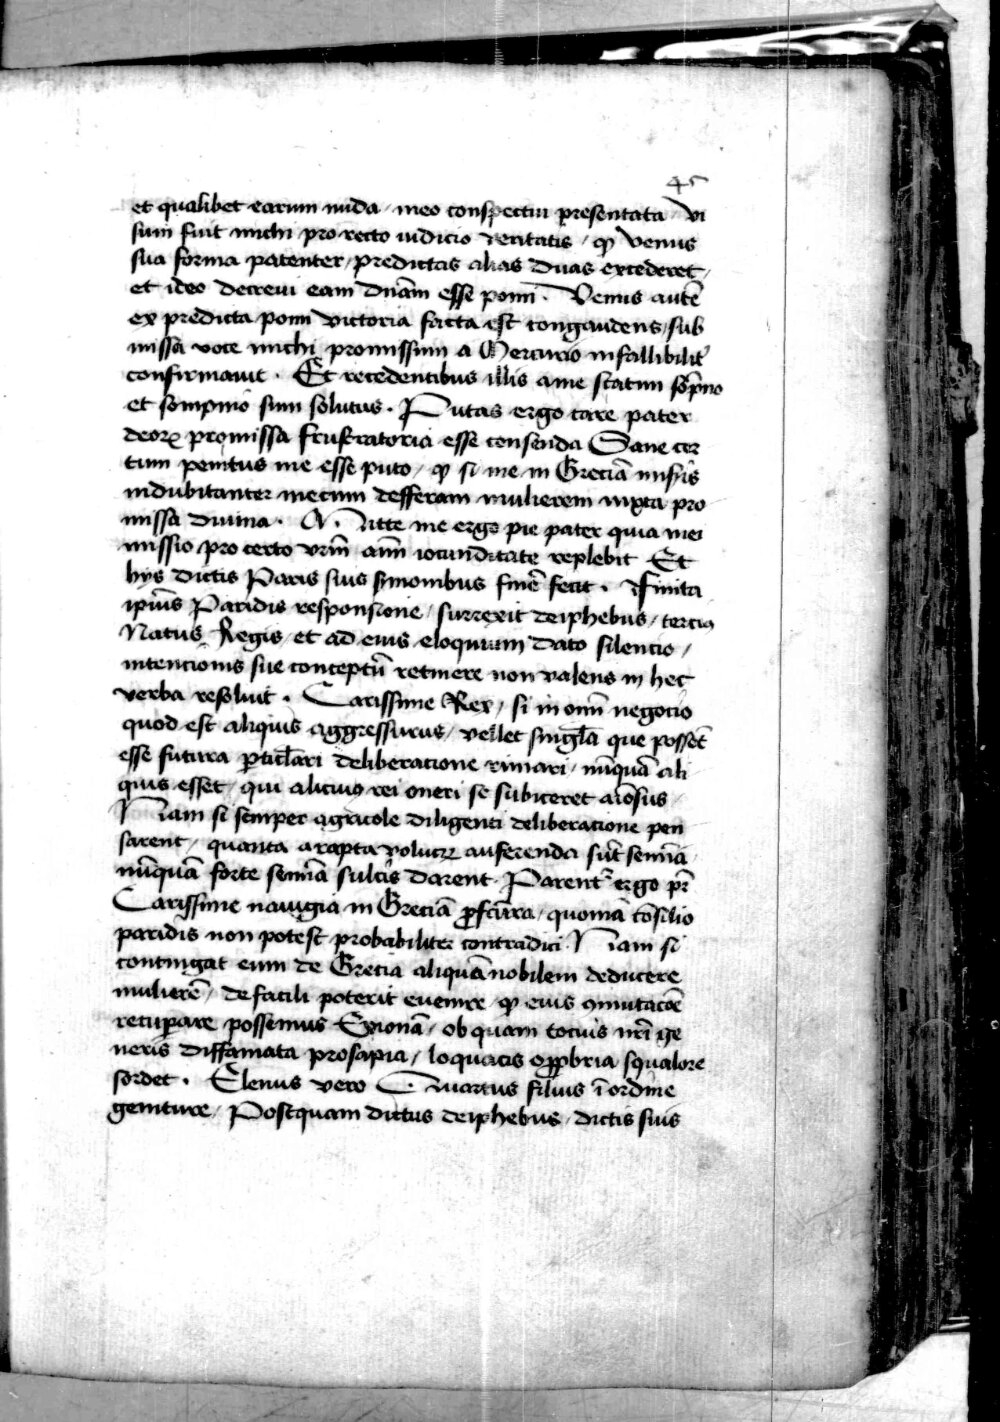 45
et qualibet earum nuda / meo conspectui presentata / vi
sum fuit michi pro recto iudicio veritatis / qꝫ venus
sua forma patenter / predictas alias duas excederet /
et ideo decreui eam dnãm esse pomi . Venus autẽ
ex predicta pomi victoria facta est congaudens / sub
missa voce michi promissum a Mercurio infallibilitʼ
confirmauit . Et recedentibus illis a me statim sõpno
et sompnio sum solutus . Putas ergo care pater
deorꝝ promissa frustratoria esse censenda Sane cer
tum penitus me esse puto / qꝫ si me in Greciã missʼis
indubitanter mecum defferam mulierem iuxta pro
missa diuina . Mitte me ergo pie pater quia mei
missio pro certo vrm̃ anĩm iocunditate replebit Et
hys dictis Paris suis sermonibus finẽ fecit . Finita
ipius Paridis responsione / surrexit deiphebus / tercius
Natus Regis / et ad eius eloquium dato silencio /
intencionis sue conceptũ retinere non valens in hec
verba resoluit . Carissime Rex / si in omĩ negocio
quod est aliquis aggressurus / vellet singl̃a que possẽt
esse futura ꝑticl̃ari deliberacione rimari / nũquã ali
quis esset / qui alicuiꝰ rei oneri se subiceret aĩosus /
Nam si semper agricole diligenti deliberacione pen
sarent / quanta a rapta volucrꝝ auferenda sũt semĩa /
nũquã forte semĩa sulcis darent . Parentʼ ergo pr̃
Carissime nauigia in Greciã ꝓfcũra / quoniã cõsilio
paridis non potest probabiliter contradici . Nam si
contingat eum de Grecia aliquã nobilem deducere
mulierẽ / de facili poterit euenire / qꝫ eius ꝯmutacõe
recuꝑare possemus Exionã / ob quam tocius nr̃i ge
neris diffamata prosapia / loquacis opꝓbria / squalore
sordet . Elenus vero Quartus filius ĩ ordine
geniture / Postquam dictus deiphebus / dictis suis